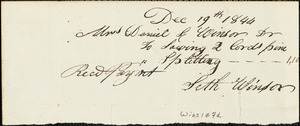 Dec 19th 1844
Mrs Daniel C Winsor Dr
To Sawing 2 Cords pine
Splitting
Recd Paymt
Seth Winsor